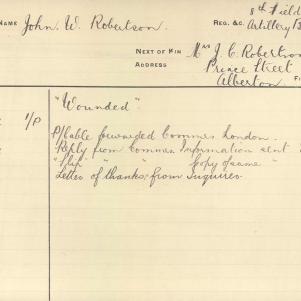 NAME John. W. Robertson. REG. &C. 8th Field
Artillery
NEXT OF KIN Mrs J. C. Robertson
ADDRESS Street
Alberton
"Wounded"
1/P
P/Cable forwarded Commrs London.
Reply from Commrs Information sent
"Slip" " " Copy of same "
Letter of thanks from Inquirer